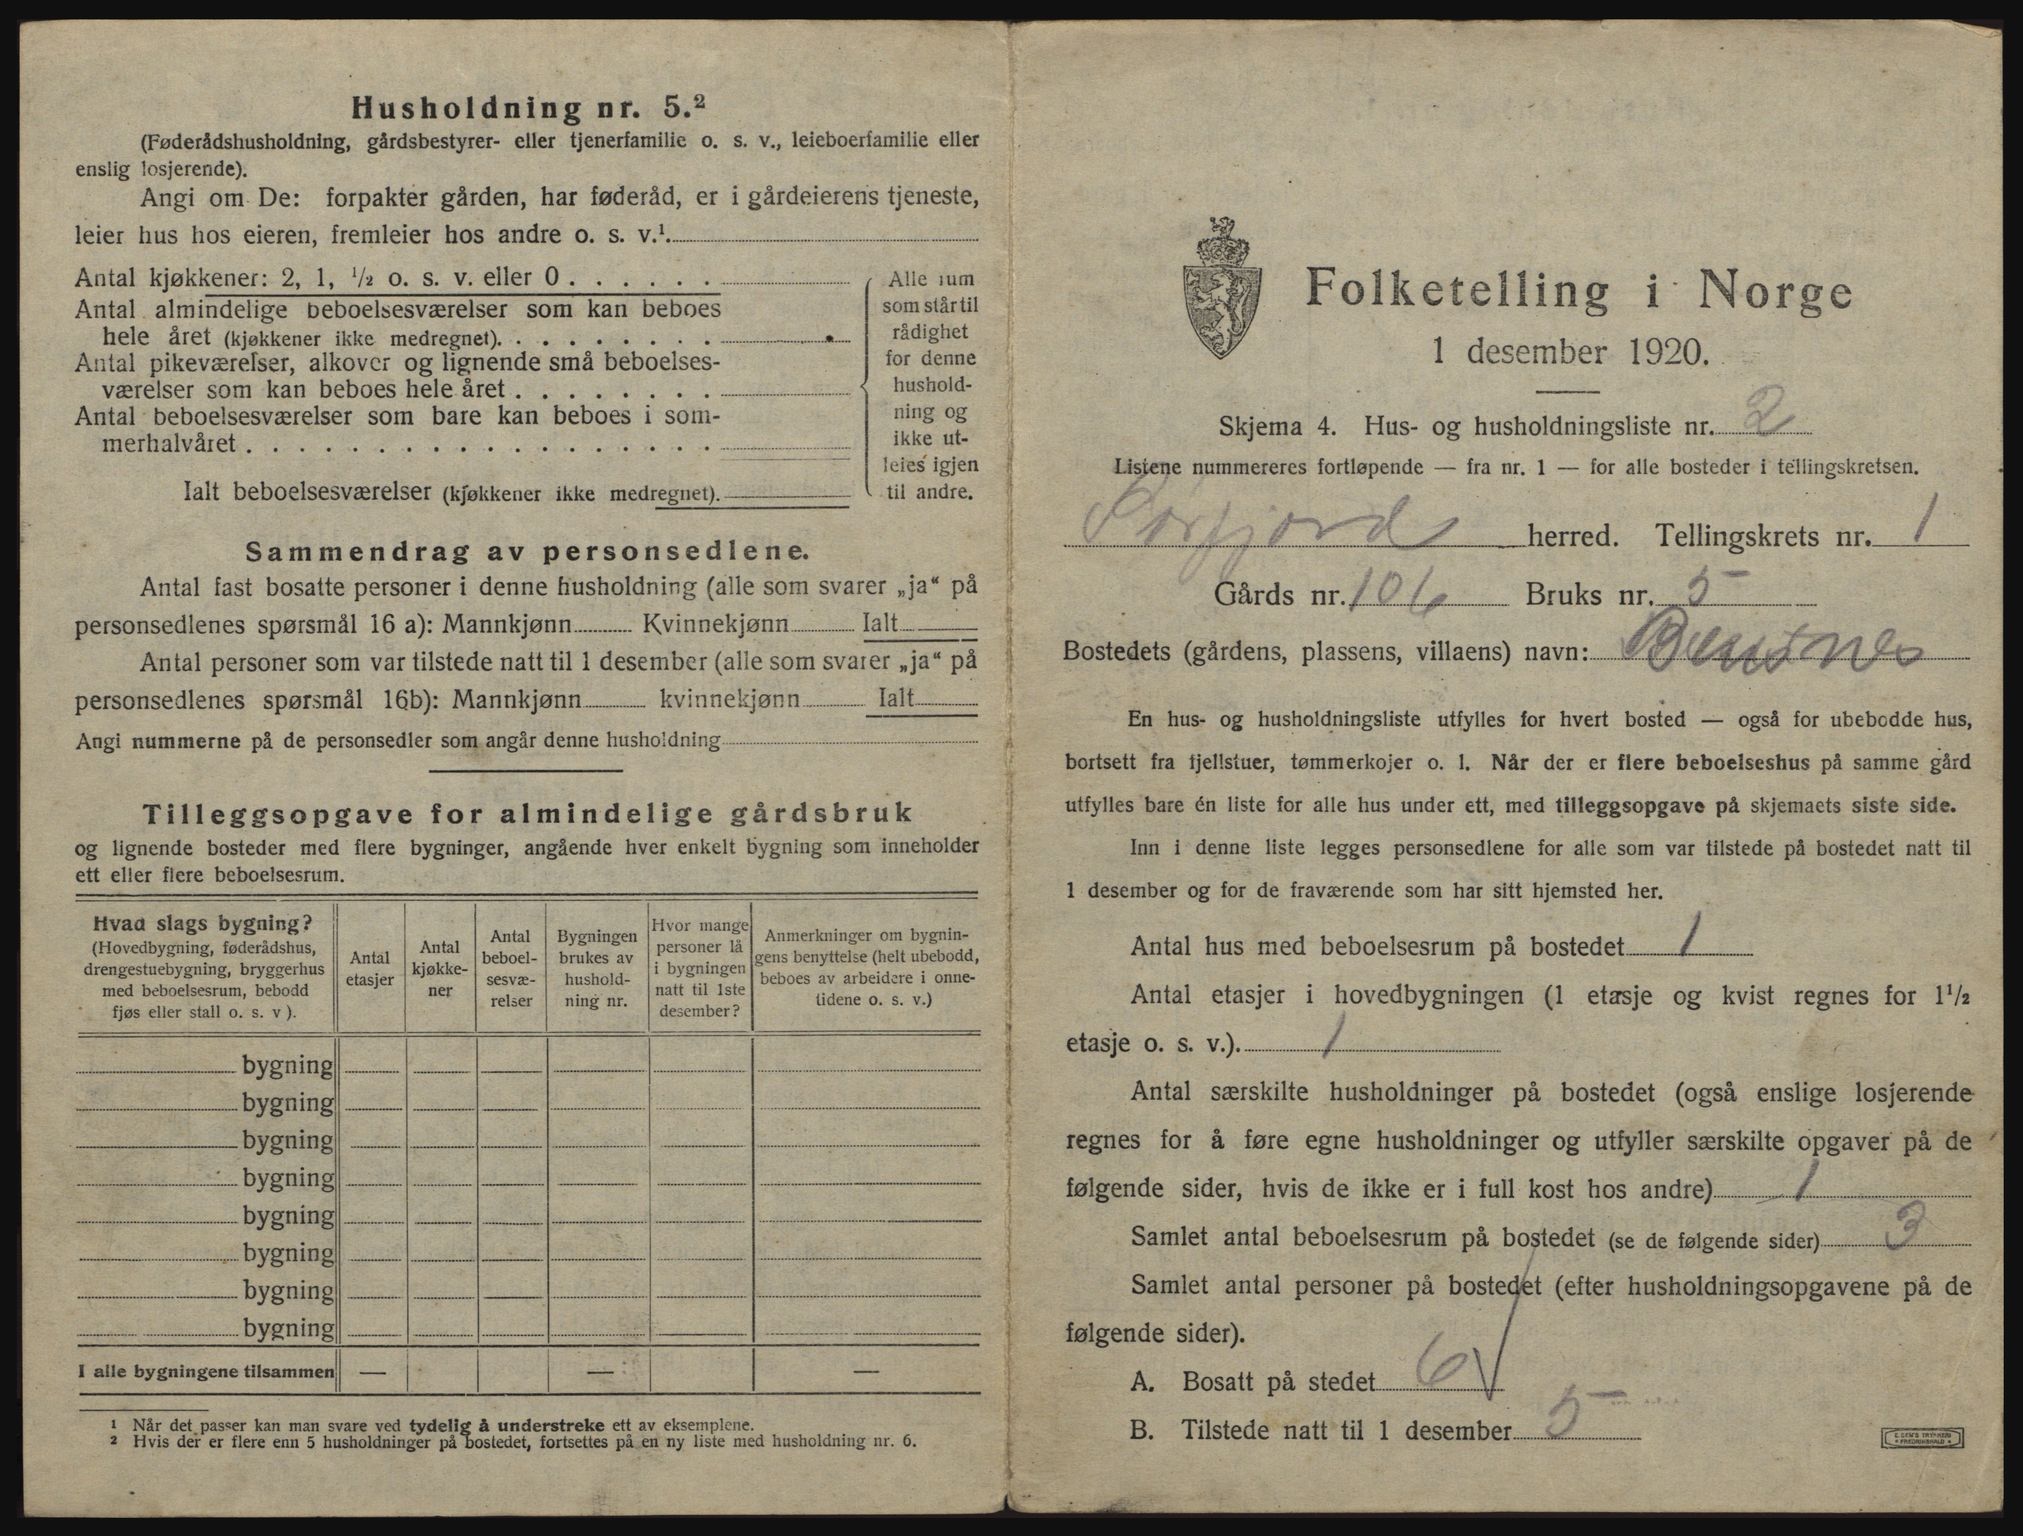 Husholdning nr. 5.²
(Føderådshusholdning, gårdsbestyrer- eller tjenerfamilie o. s. v., leieboerfamilie eller
enslig losjerende).
Angi om De: forpakter gården, har føderåd, er i gårdeierens tjeneste,
leier hus hos eieren, fremleier hos andre o. s. v.¹.
Antal kjøkkener: 2, 1, ½ o. s. v. eller 0 . . . . . .
Antal almindelige beboelsesværelser som kan beboes
hele året (kjøkkener ikke medregnet). . . . . . . . .
Antal pikeværelser, alkover og lignende små beboelses-
værelser som kan beboes hele året . . . . . . . .
Antal beboelsesværelser som bare kan beboes i som-
merhalvåret . . . . . . . . . . . . . . . . . .
Ialt beboelsesværelser (kjøkkener ikke medregnet).
Alle rum
som står til
rådighet
for denne
hushold-
ning og
ikke ut-
leies igjen
til andre.
Sammendrag av personsedlene.
Antal fast bosatte personer i denne husholdning (alle som svarer „ja“ på
personsedlenes spørsmål 16 a): Mannkjønn Kvinnekjønn Ialt
Antal personer som var tilstede natt til 1 desember (alle som svarer „ja“ på
personsedlenes spørsmål 16b): Mannkjønn kvinnekjønn Ialt
Angi nummerne på de personsedler som angår denne husholdning
Tilleggsopgave for almindelige gårdsbruk
og lignende bosteder med flere bygninger, angående hver enkelt bygning som inneholder
ett eller flere beboelsesrum.
Hvad slags bygning?
(Hovedbygning, føderådshus,
drengestuebygning, bryggerhus
med beboelsesrum, bebodd
fjøs eller stall o. s. v ).
Antal
etasjer
Antal
kjøkke-
ner
Antal
beboel-
sesvæ-
relser
Bygningen
brukes av
hushold-
ning nr.
Hvor mange
personer lå
i bygningen
natt til 1ste
desember?
Anmerkninger om bygnin-
gens benyttelse (helt ubebodd,
beboes av arbeidere i onne-
tidene o. s. v.)
bygning
bygning
bygning
bygning
bygning
bygning
bygning
bygning
I alle bygningene tilsammen — — —
¹ Når det passer kan man svare ved tydelig å understreke ett av eksemplene.
² Hvis der er flere enn 5 husholdninger på bostedet, fortsettes på en ny liste med husholdning nr. 6.
Folketelling i Norge
1 desember 1920.
Skjema 4. Hus- og husholdningsliste nr. 2
Listene nummereres fortløpende — fra nr. 1 — for alle bosteder i tellingskretsen.
Sørfjord herred. Tellingskrets nr. 1
Gårds nr. 106 Bruks nr. 5
Bostedets (gårdens, plassens, villaens) navn: Bensnes
En hus- og husholdningsliste utfylles for hvert bosted — også for ubebodde hus,
bortsett fra fjellstuer, tømmerkojer o. l. Når der er flere beboelseshus på samme gård
utfylles bare én liste for alle hus under ett, med tilleggsopgave på skjemaets siste side.
Inn i denne liste legges personsedlene for alle som var tilstede på bostedet natt til
1 desember og for de fraværende som har sitt hjemsted her.
Antal hus med beboelsesrum på bostedet 1
Antal etasjer i hovedbygningen (1 etasje og kvist regnes for 1½
etasje o. s. v.). 1
Antal særskilte husholdninger på bostedet (også enslige losjerende
regnes for å føre egne husholdninger og utfyller særskilte opgaver på de
følgende sider, hvis de ikke er i full kost hos andre) 1
Samlet antal beboelsesrum på bostedet (se de følgende sider) 3
Samlet antal personer på bostedet (efter husholdningsopgavene på de
følgende sider).
A. Bosatt på stedet 6
B. Tilstede natt til 1 desember 5